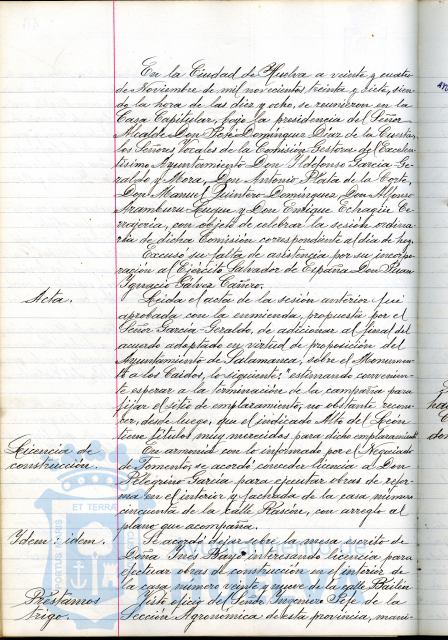 En la Ciudad de Huelva a veinte y cuatro
de Noviembre de mil novecientos treinta y siete, sien-
do la hora de las diez y ocho, se reunieron en la
Casa Capitular, bajo la presidencia del Señor
Alcalde Don Pedro Domínguez Díaz de la Cuesta,
los Señores Vocales de la Comisión Gestora del Excelen-
tísimo Ayuntamiento Don Ildefonso García Ge-
raldo y Mora, Don Antonio Plata de la Corte,
Don Manuel Quintero Domínguez, Don Alfonso
Aramburu Luque y Don Enrique Echagüe
con objeto de celebrar la sesión ordina-
ria de dicha Comisión correspondiente al día de hoy.
Excusó su falta de asistencia por su incorpo-
ración al Ejército Salvador de España Don Juan
Ignacio Gálvez Cañero.
Acta.
Leída el acta de la sesión anterior fué
aprobada con la enmienda, propuesta por el
Señor García Geraldo, de adicionar al final del
acuerdo adoptado en virtud de proposición del
Ayuntamiento de Salamanca, sobre el Monumen-
to a los Caídos, lo siguiente: "estimando convenien-
te esperar a la terminación de la campaña para
fijar el sitio de emplazamiento, no obstante recono-
cer, desde luego, que el indicado Alto del
tiene títulos muy merecidos para dicho emplazamiento
Licencia de
construcción.
En armonía con lo informado por el Negociado
de Fomento, se acordó conceder licencia a Don
Pelegrino García para ejecutar obras de refor-
ma en el interior y fachada de la casa número
cincuenta de la calle Rascón, con arreglo al
plano que acompaña.
Idem: idem.
Se acordó dejar sobre la mesa escrito de
Doña Inés Rayo interesando licencia para
efectuar obras de construcción en el interior de
la casa número veinte y nueve de la calle
Préstamos
trigo.
Visto oficio del Señor Ingeniero Jefe de la
Sección Agronómica de esta provincia, mani-
PORTUS MARIS ET TERRAE